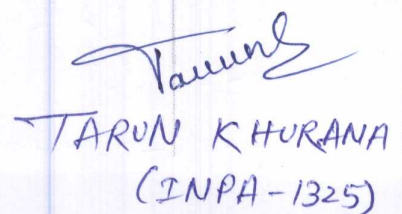 Tarun
TARUN KHURANA
(INPA-1325)